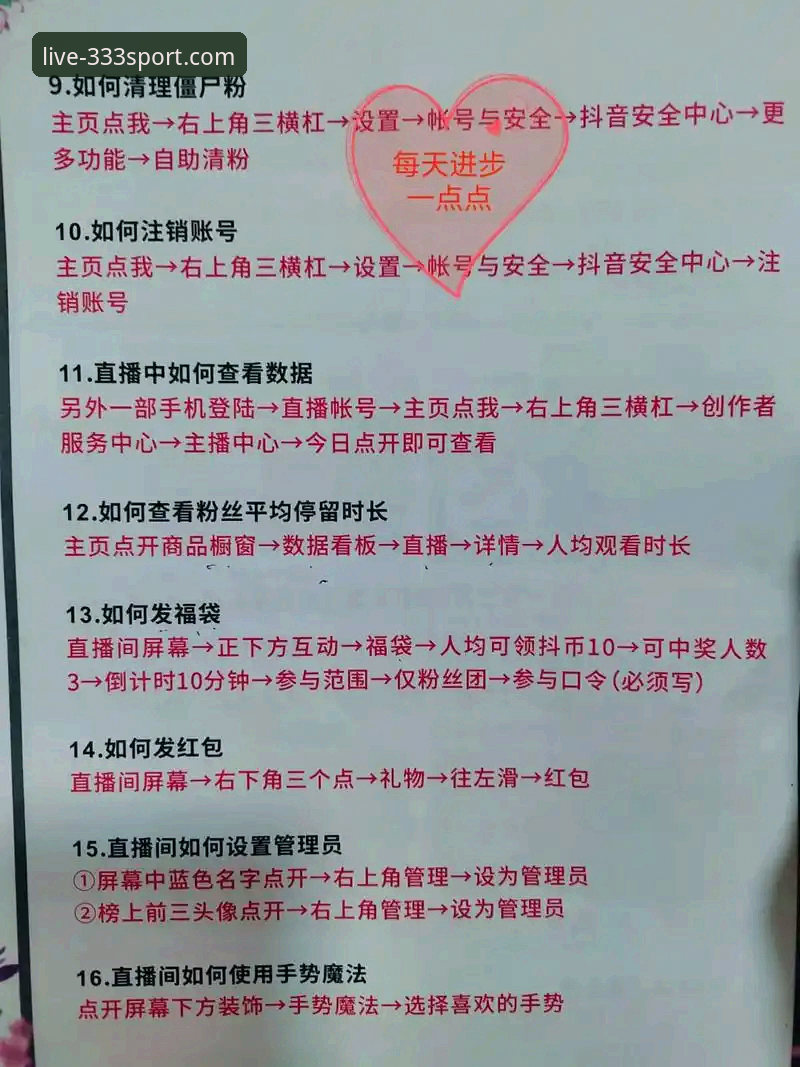 live-333sport.com
9.如何清理僵尸粉
主页点我→右上角三横杠→设置→帐号与安全→抖音安全中心→更
多功能→自助清粉
每天进步
一点点
10.如何注销账号
主页点我→右上角三横杠→设置→帐号与安全→抖音安全中心→注
销账号
11.直播中如何查看数据
另外一部手机登陆→直播帐号→主页点我→右上角三横杠→创作者
服务中心→主播中心→今日点开即可查看
12.如何查看粉丝平均停留时长
主页点开商品橱窗→数据看板→直播→详情→人均观看时长
13.如何发福袋
直播间屏幕→正下方互动→福袋→人均可领抖币10→可中奖人数
3→倒计时10分钟→参与范围→仅粉丝团→参与口令(必须写)
14.如何发红包
直播间屏幕→右下角三个点→礼物→往左滑→红包
15.直播间如何设置管理员
①屏幕中蓝色名字点开→右上角管理→设为管理员
②榜上前三头像点开→右上角管理→设为管理员
16.直播间如何使用手势魔法
点开屏幕下方装饰→手势魔法→选择喜欢的手势